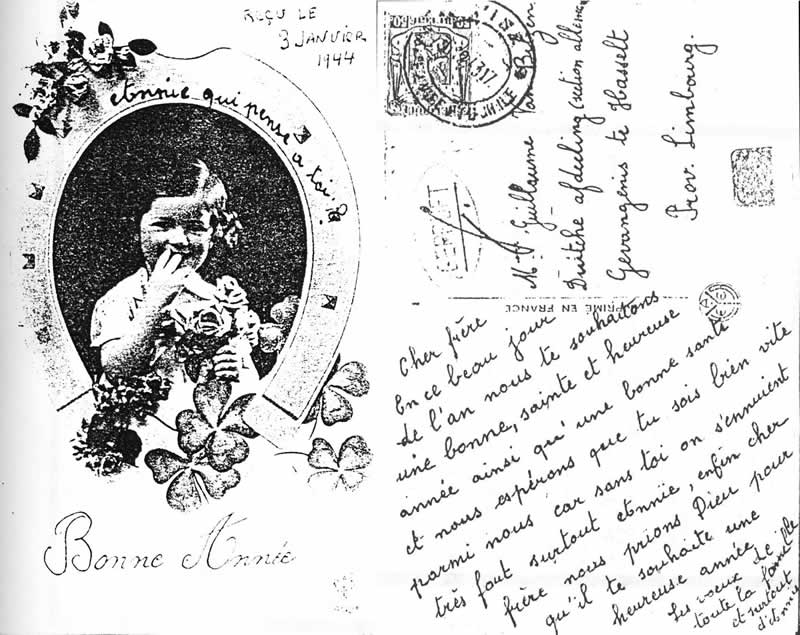 REÇU LE
3 JANVIER
1944
etnnie qui pense a toi?
Bonne Année
Mr. Guillaume Van
Duitche afdeling (section allem
Gevangénis te Hasselt
Prov. Limbourg.
IMPRIMÉ EN FRANCE
Cher frère
En ce beau jour
de l'an nous te souhaitons
une bonne, sainte et heureuse
année ainsi qu'une bonne santé
et nous espérons que tu sois bien vite
parmi nous car sans toi on s'ennuient
très fort surtout etnnie, enfin cher
frère nous prions Dieu pour
qu'il te souhaite une
heureuse année
Les voeux de
toute la famille
et surtout
d'etnnie